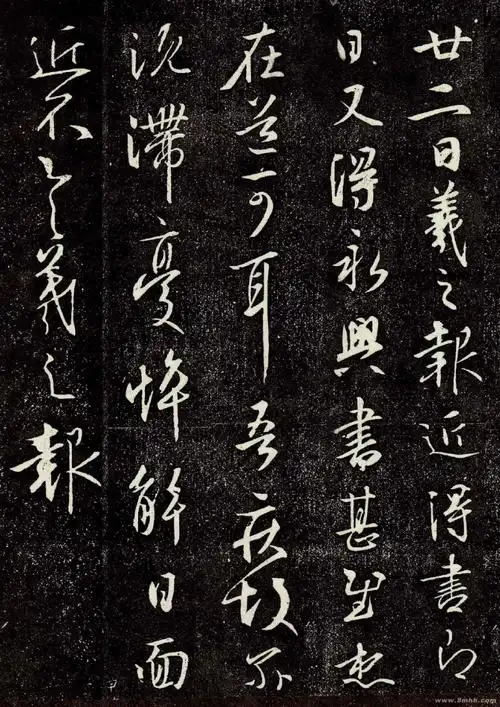 廿二日羲之報近得書即
日又得永興書甚慰想
在道可耳吾疾故尔
沉滯憂悴解日面
近不具羲之報
www.8mhh.com